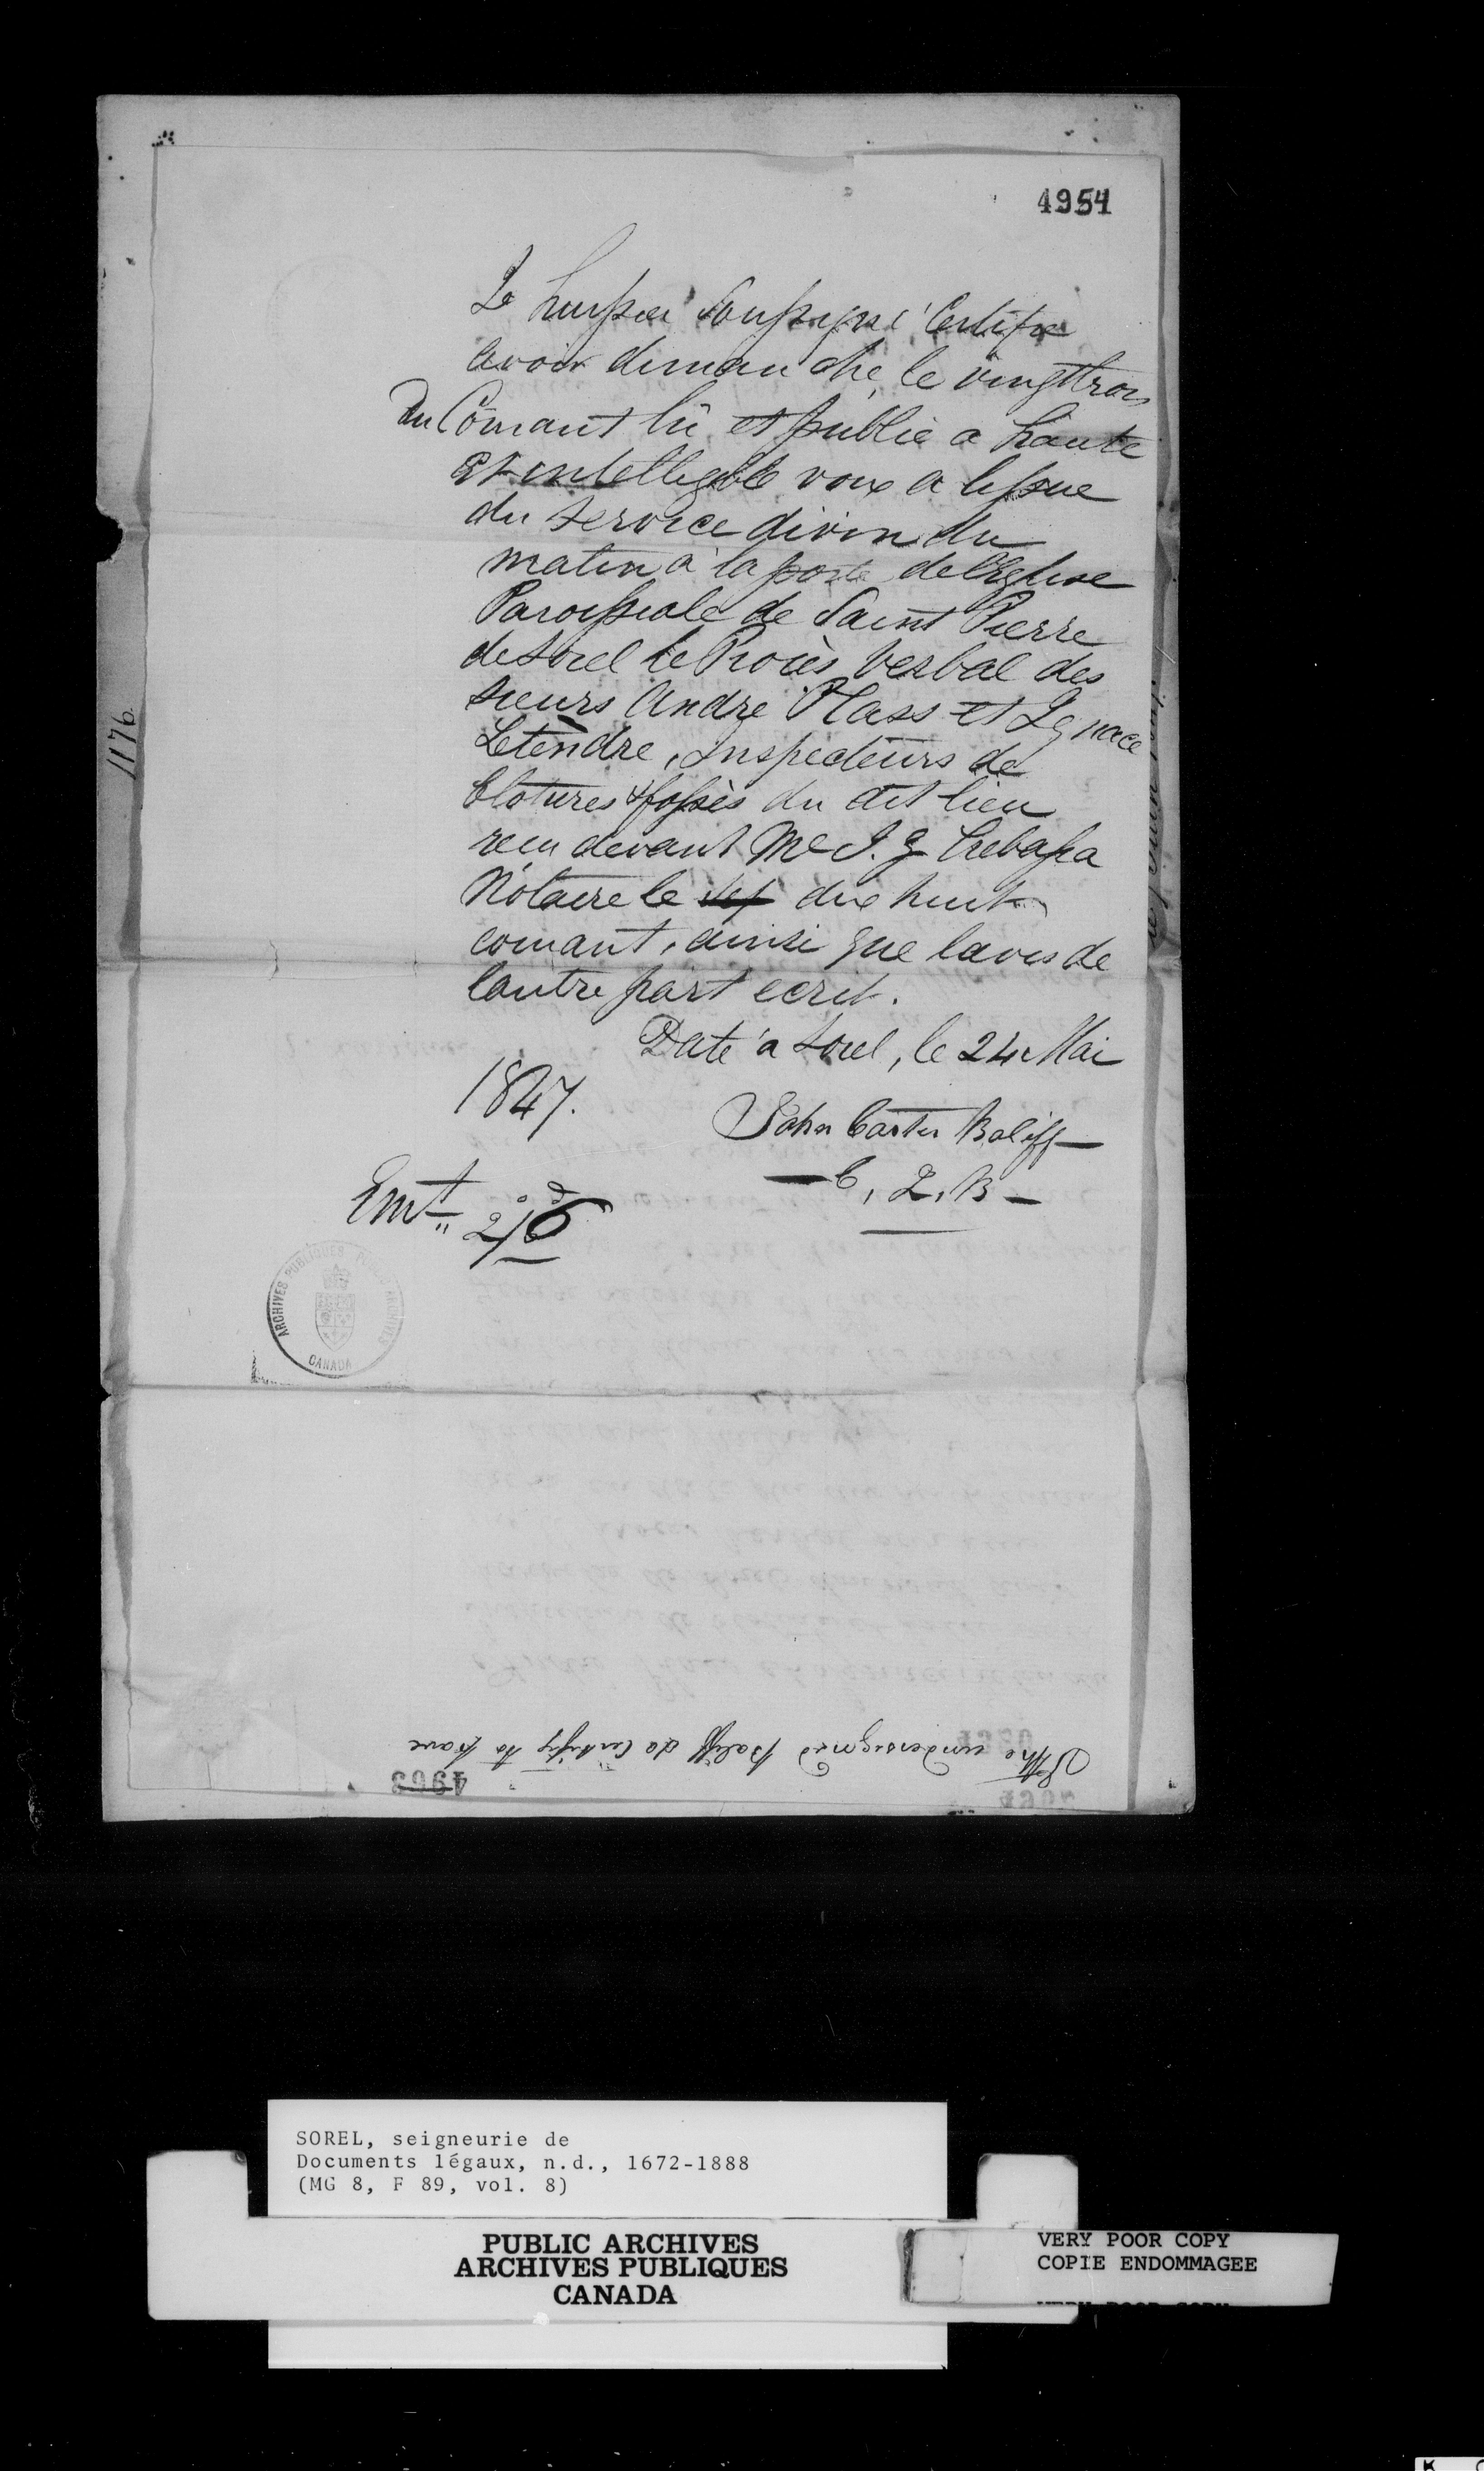 4954
Le huissier Soussigné Certifie
avoir dimanche, le vingttrois
Du Courant lû et publié a haute
et intelligible voix a lissue
du service divin du
matin à la porte de l'Eglise
Paroissiale de Saint Pierre
de Sorel le Procès Verbal des
Sieurs Andre Plass et Ignace
Letendre, Inspecteurs de
Clotures & fossès du dit lieu
recu devant Me J. G Crebassa
Notaire le dix huit
courant, ainsi que lavis de
lautre part ecrit.
Daté à Sorel, le 24 Mai
1847.
John Carter Baliff
C, Z, B
Emt 2/6
1176
ARCHIVES PUBLIQUES PUBLIC ARCHIVES
CANADA
I the undersigned Baliff do Certify to have
4963
SOREL, seigneurie de
Documents légaux, n.d., 1672-1888
(MG 8, F 89, vol. 8)
PUBLIC ARCHIVES
ARCHIVES PUBLIQUES
CANADA
VERY POOR COPY
COPIE ENDOMMAGEE
VERY POOR COPY